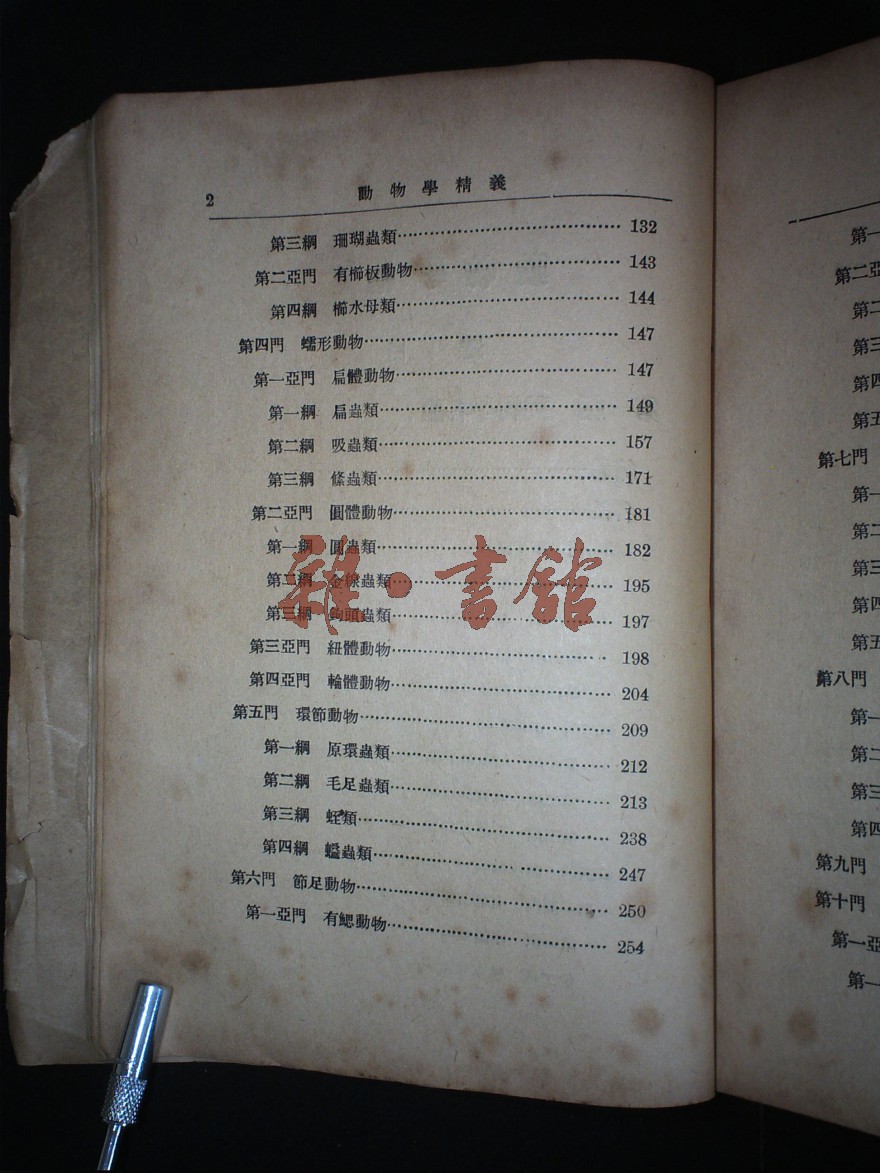 2
動物學精義
第三綱 珊瑚蟲類 132
第二亞門 有櫛板動物 143
第四綱 櫛水母類 144
第四門 蠕形動物 147
第一亞門 扁體動物 147
第一綱 扁蟲類 149
第二綱 吸蟲類 157
第三綱 條蟲類 171
第二亞門 圓體動物 181
第一綱 圓蟲類 182
第二綱 金線蟲類 195
第三綱 鉤頭蟲類 197
第三亞門 紐體動物 198
第四亞門 輪體動物 204
第五門 環節動物 209
第一綱 原環蟲類 212
第二綱 毛足蟲類 213
第三綱 蛭類 238
第四綱 螠蟲類 247
第六門 節足動物 250
第一亞門 有鰓動物 254
雜·書館
第一
第二亞
第二
第三
第四
第五
第七門
第一
第二
第三
第四
第五
第八門
第一
第二
第三
第四
第九門
第十門
第一亞
第一